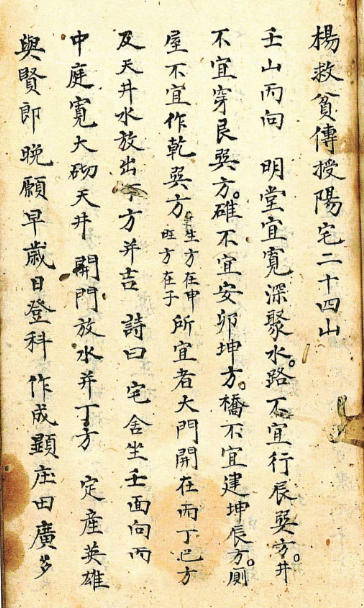 楊救貧傳授陽宅二十四山
壬山丙向 明堂宜寬深聚水。路不宜行辰巽方。井
不宜穿艮巽方。碓不宜安卯坤方。橋不宜建坤辰方。厠
屋不宜作乾巽方 生方在申 旺方在子 所宜者大門開在丙丁巳方
及天井水放出 方并吉 詩曰 宅舍坐壬面向丙
中庭寬大砌天井 開門放水并丁方 定産英雄
與賢郎晚願早歲日登科 作成顯庄田廣多